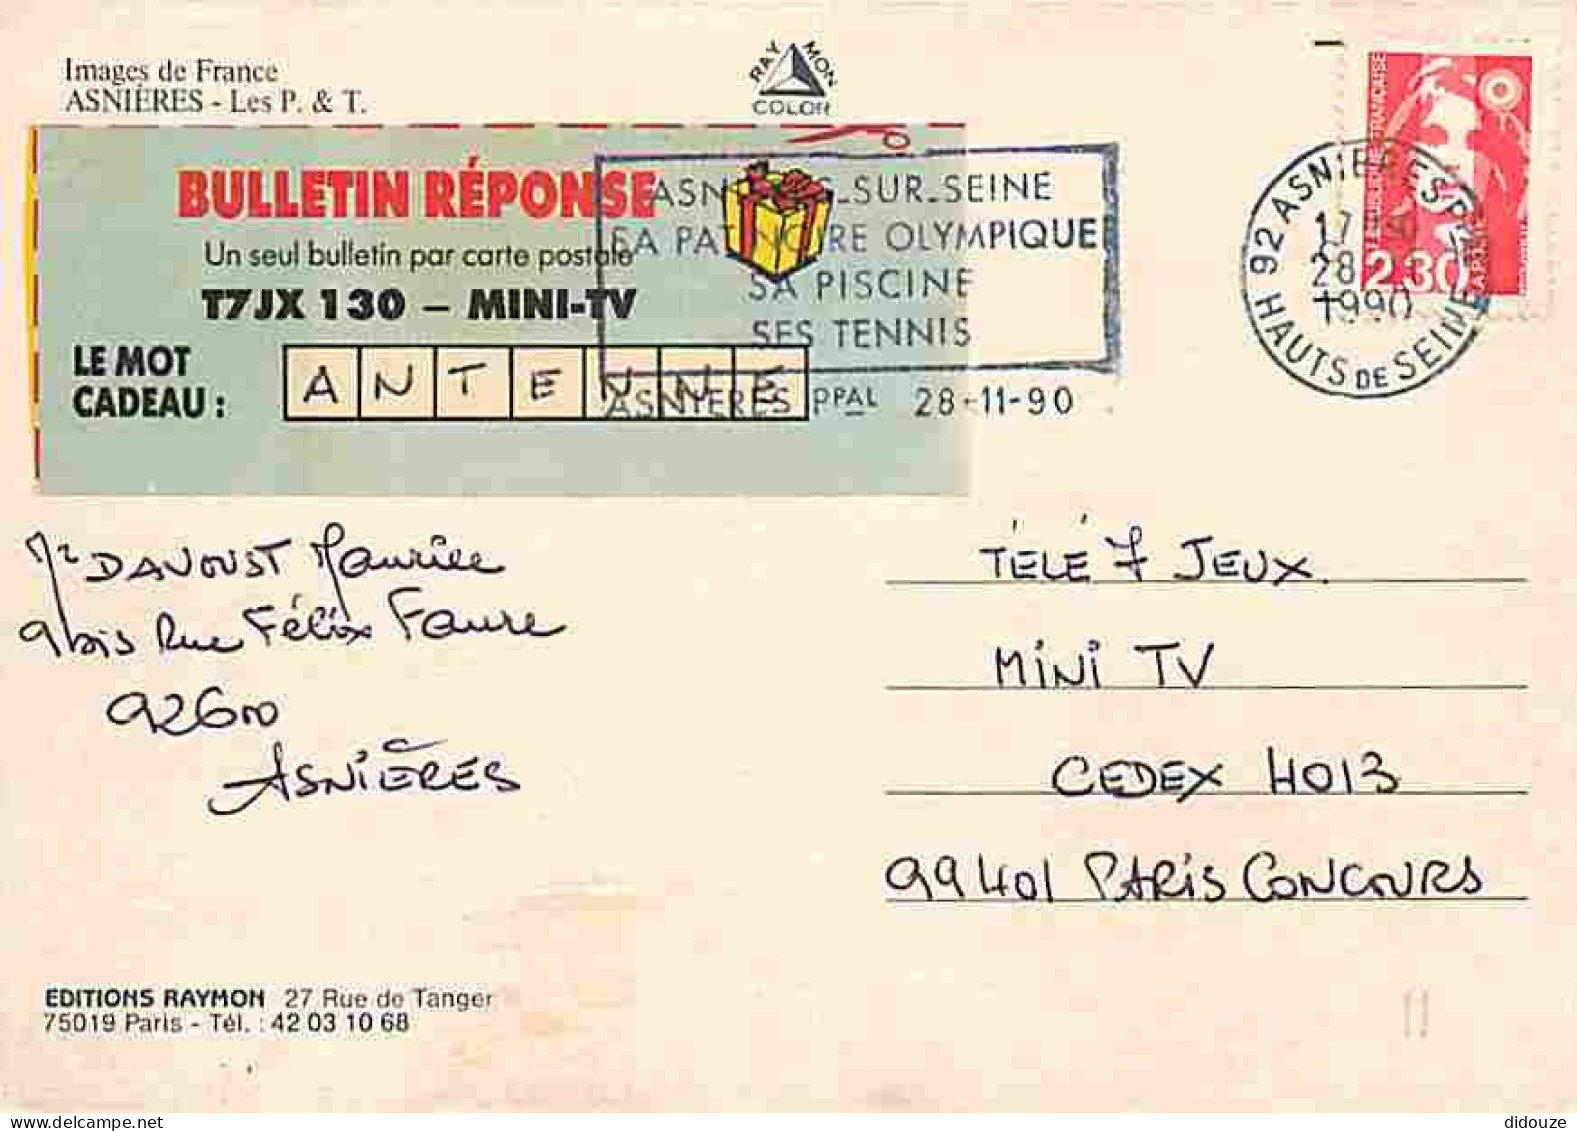 Images de France
ASNIÈRES - Les P. & T.
RAYMON
COLOR
BULLETIN RÉPONSE
Un seul bulletin par carte postale
T7JX 130 – MINI-TV
LE MOT
CADEAU :
ANTENNE
SUR-SEINE
SA PATINOIRE OLYMPIQUE
SA PISCINE
SES TENNIS
ASNIERES PPAL 28-11-90
92 ASNIERES PPAL
17
28
1990
HAUTS DE SEINE
REPUBLIQUE FRANÇAISE
2,30
LA POSTE
Mr DAVOUST Maurice
9 bis Rue Félix Faure
92600
ASNIÈRES
TÉLÉ 7 JEUX.
MINI TV
CEDEX 4013
99401 PARIS CONCOURS
EDITIONS RAYMON 27 Rue de Tanger
75019 Paris - Tél. : 42 03 10 68
didouze